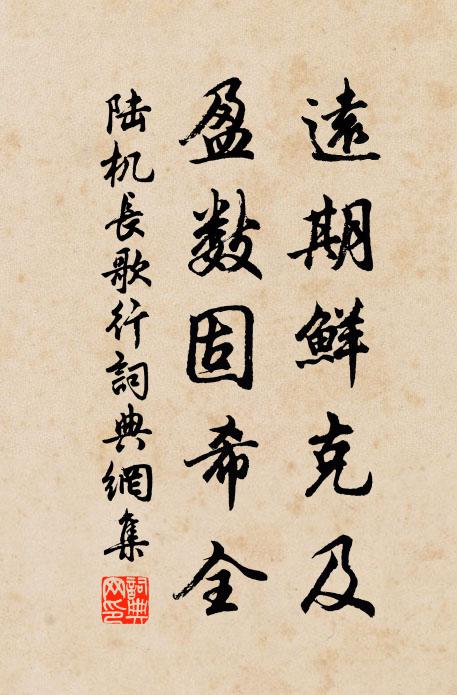 遠期鮮克及
盈数固希全
陆机長歌行詞典網集
詞典网印